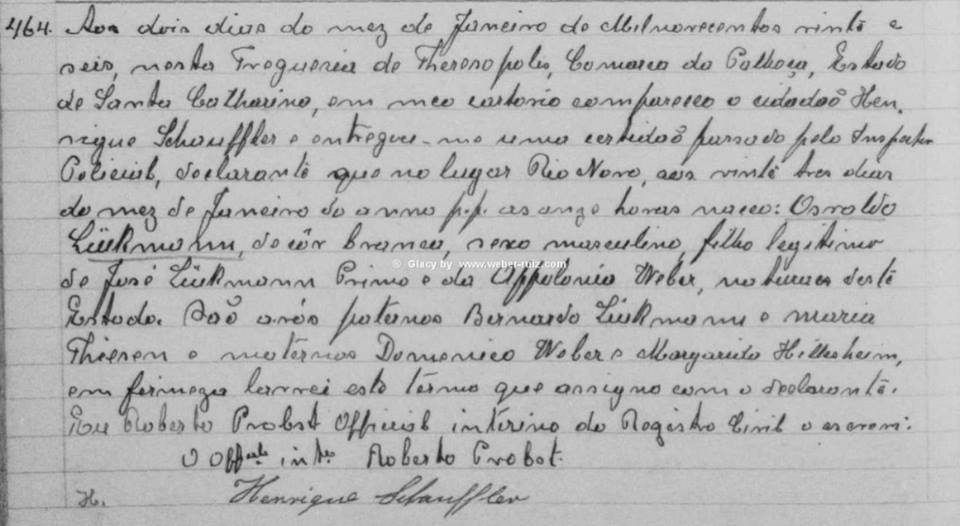 464. Aos dois dias do mez de Janeiro de Milnovecentos vinte e
seis, nesta Freguezia de Theresopolis, Comarca da Palhoça, Estado
de Santa Catharina, em meu cartorio compareceo o cidadaõ Hen-
rique Schauffler e entregou-me uma certidaõ passada pelo Inspector
Policial, declarante que no lugar Rio Novo, aos vinte tres dias
do mez de Janeiro do anno p.p. as onze horas nasceo: Osvaldo
Lükmann, de côr branca, sexo masculino, filho legitimo
de José Lükmann Primo e da Appolonia Weber, naturaes deste
Estado. Saõ avós paternos Bernardo Lükmann e Maria
Thiesen e maternos Domenico Weber e Margarida Hillesheim,
em firmeza lavrei este termo que assigno com o declarante.
Eu Roberto Probst Official interino do Registro Civil o escrevi.
O Offcial intro Roberto Probst.
H. Henrique Schauffler
© Glacy by www.weber-ruiz.com